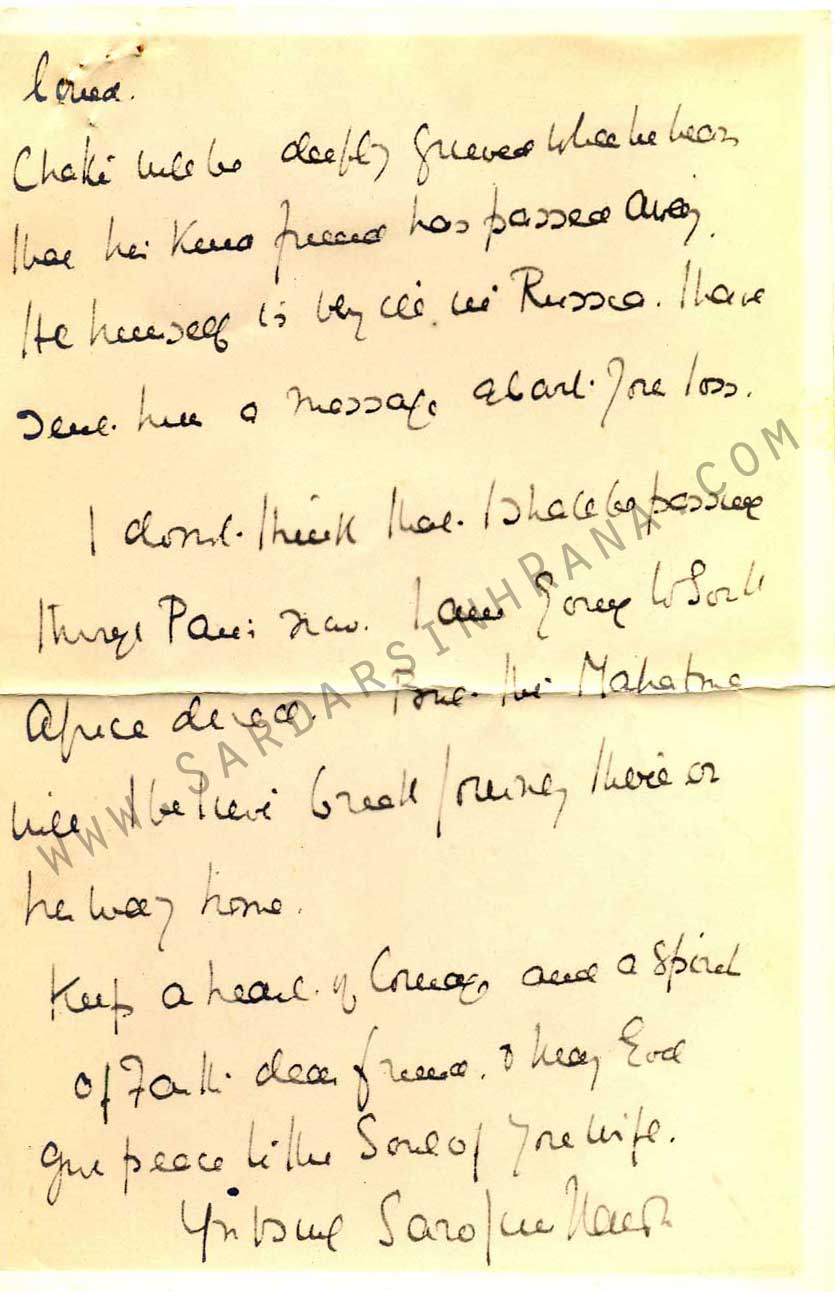 loved.
Chatto will be deeply grieved when he hears
that his kind friend has passed away.
He himself is very ill in Russia. I have
sent him a message about your loss.
I do not think that I shall be passing
through Paris now. I am going to South
Africa direct. But the Mahatma
will I believe break journey there on
his way home.
Keep a heart of courage and a spirit
of Faith dear friend. & may God
give peace to the Soul of your wife.
Sarojini Naidu
WWW.SARDARSINHRANA.COM